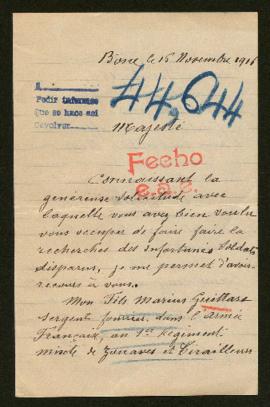 Bone le 16 Novembre 1916
A
Pedir informes
Que se hace así
Devolver
44,644
Majesté
Fecho
Connaissant la
généreuse sollicitude avec
laquelle vous avez bien voulu
vous occuper de faire faire la
recherches des infortunés soldats
disparus, je me permet d'avoir
recours à vous.
Mon Fils Marius Guittard
sergent fourrier dans l'Armée
Française, au 1er Regiment
mixte de Zouaves et Tirailleurs